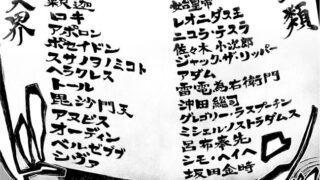 類
始皇帝
レオニダス王
ニコラ・テスラ
佐々木小次郎
ジャック・ザ・リッパー
アダム
雷電為右衛門
沖田総司
グレゴリー・ラスプーチン
ミシェル・ノストラダムス
呂布奉先
シモ・ヘイヘ
坂田金時
界
釈迦
ロキ
アポロン
ポセイドン
スサノヲノミコト
ヘラクレス
トール
毘沙門天
アヌビス
オーディン
ベルゼブブ
シヴァ